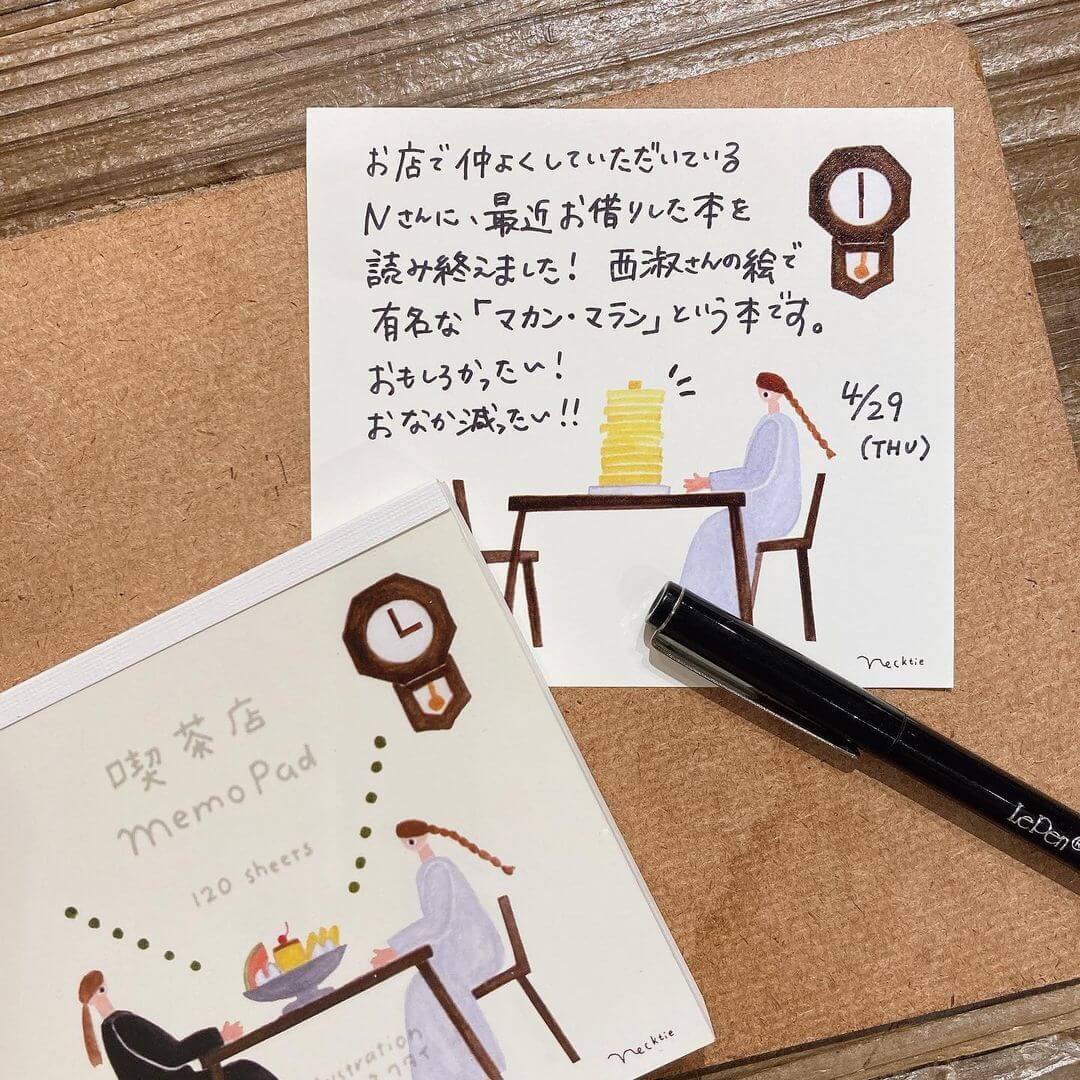 お店で仲よくしていただいている
Nさんに、最近お借りした本を
読み終えました! 西淑さんの絵で
有名な「マカン・マラン」という本です。
おもしろかったい!
おなか減ったい!!
4/29
(THU)
Necktie
喫茶店
memo Pad
120 sheets
Necktie
LePen®